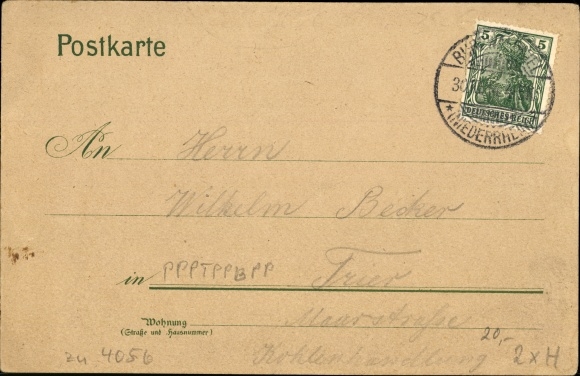 Postkarte
5 5
DEUTSCHES REICH
30
* (NIEDERRHEIN)
An Herrn
Wilhelm Becker
in Trier
PPPTPPBPP
Wohnung
(Straße und Hausnummer)
Maarstraße
Kohlenhandlung
20,-
zu 4056
2xH